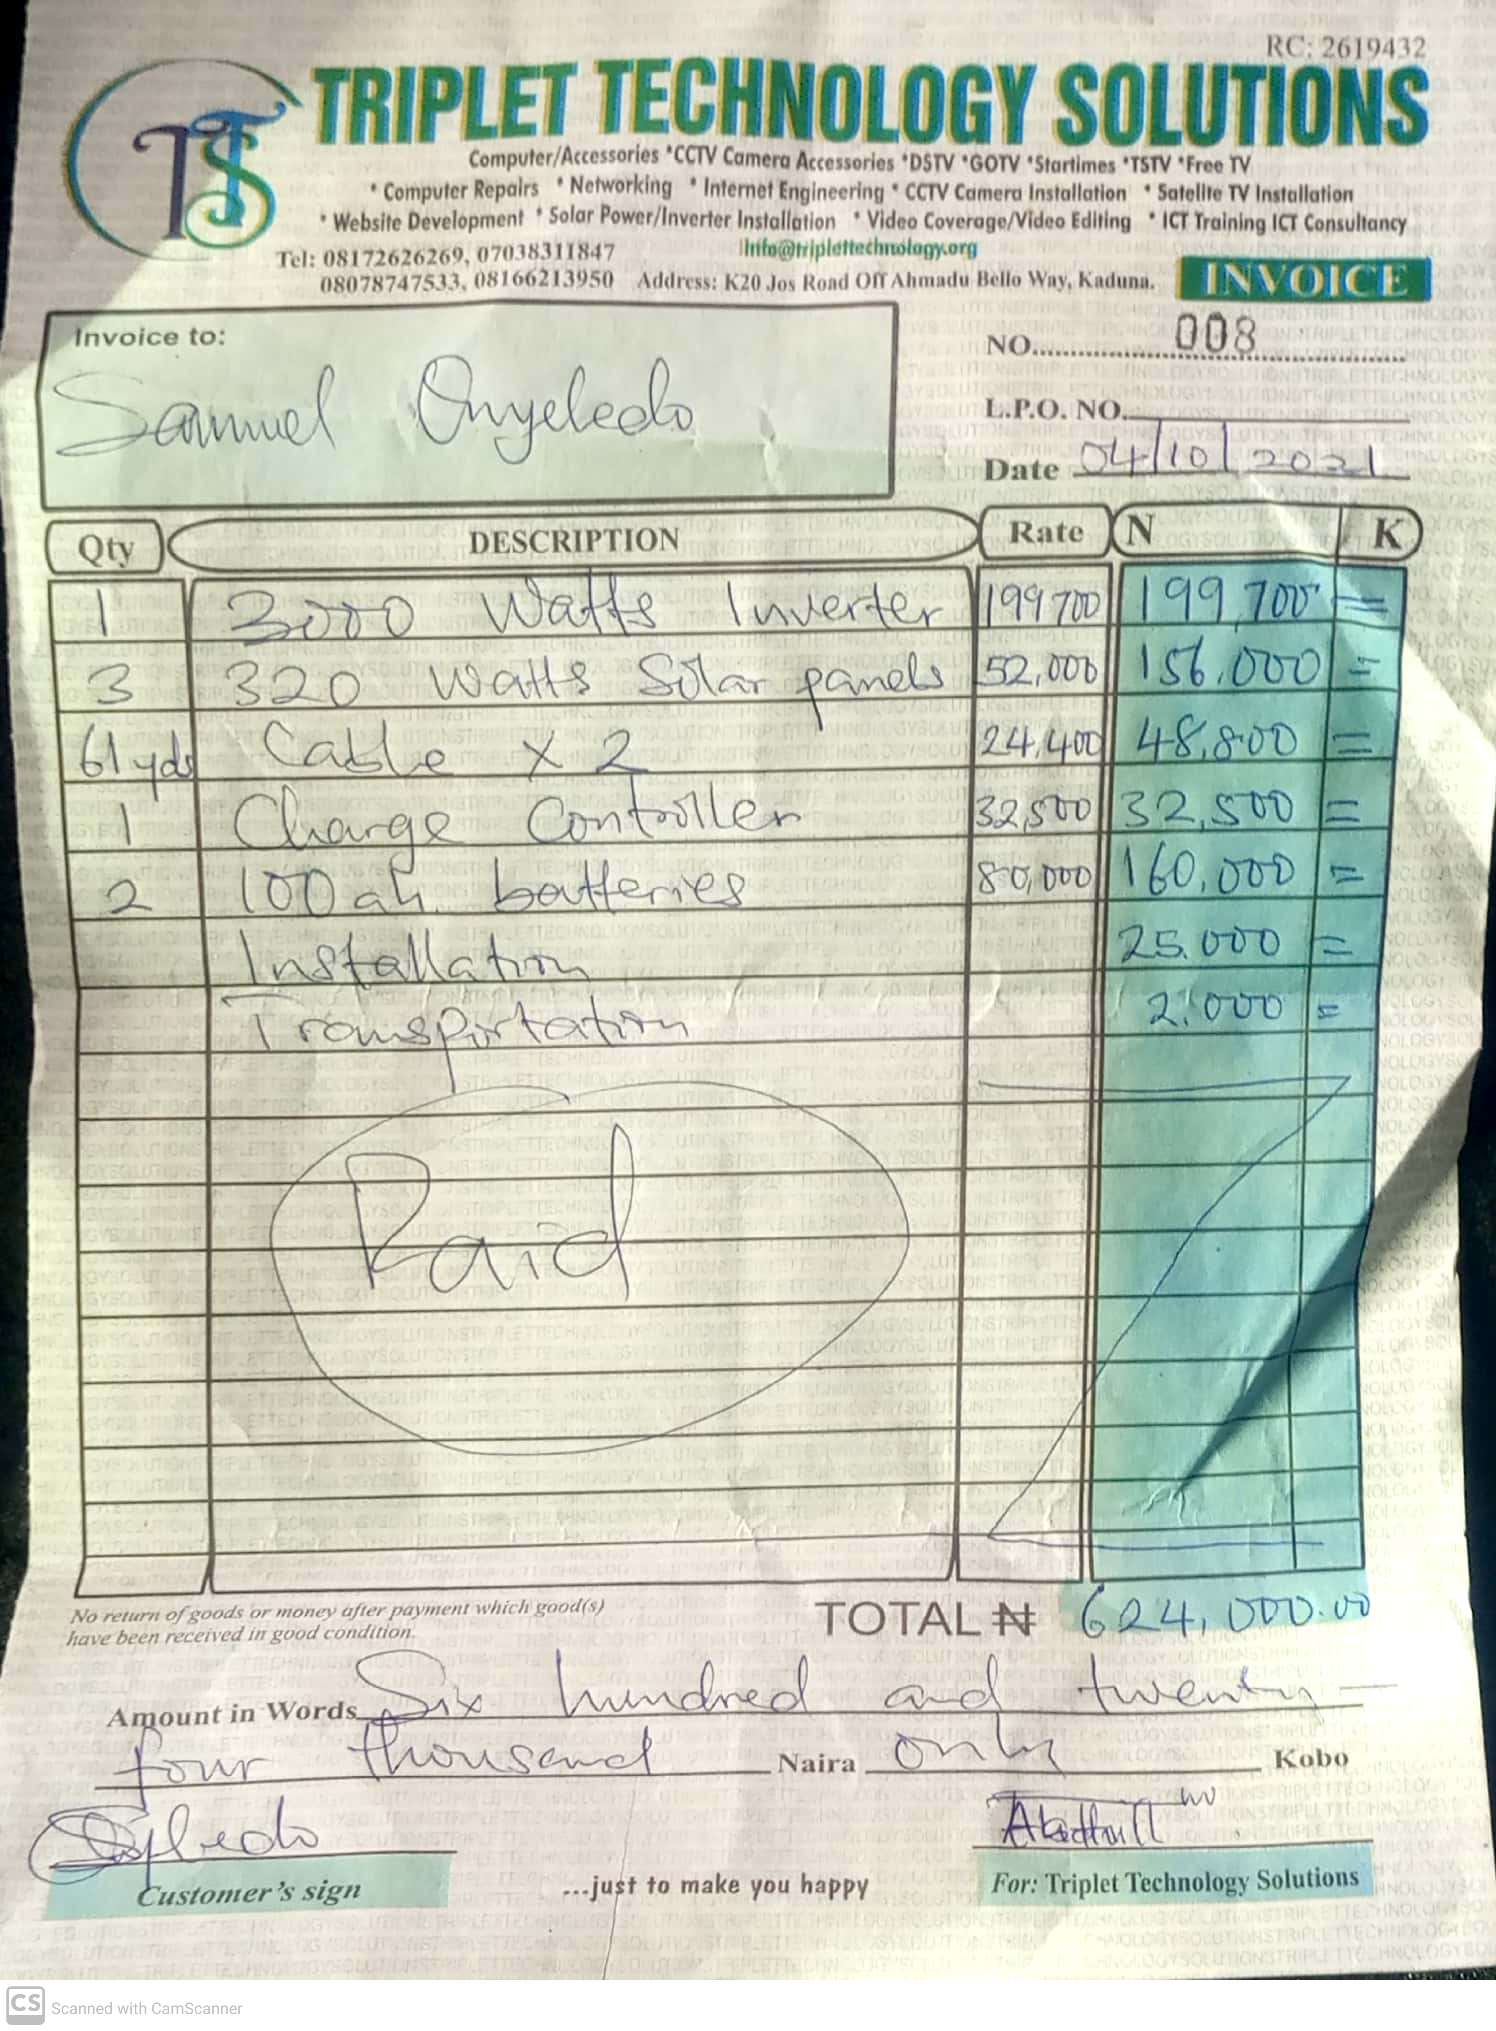 RC: 2619432
TRIPLET TECHNOLOGY SOLUTIONS
Computer/Accessories *CCTV Camera Accessories *DSTV *GOTV *Startimes *TSTV *Free TV
* Computer Repairs * Networking * Internet Engineering * CCTV Camera Installation * Satellte TV Installation
* Website Development * Solar Power/Inverter Installation * Video Coverage/Video Editing * ICT Training ICT Consultancy
Tel: 08172626269, 07038311847 Info@triplettechnology.org
08078747533, 08166213950 Address: K20 Jos Road Off Ahmadu Bello Way, Kaduna.
INVOICE
Invoice to:
Samuel Onyeledo
NO. 008
L.P.O. NO.
Date 04/10/2021
Qty DESCRIPTION Rate N K
1 3000 Watts Inverter 199700 199,700 =
3 320 Watts Solar panels 52,000 156,000 =
61yds Cable x 2 24,400 48,800 =
1 Charge Controller 32,500 32,500 =
2 100ah batteries 80,000 160,000 =
Installation 25.000 =
Transportation 2.000 =
Paid
TOTAL ₦ 624,000.00
No return of goods or money after payment which good(s)
have been received in good condition.
Amount in Words Six hundred and twenty-
four thousand Naira only Kobo
Customer's sign
...just to make you happy
For: Triplet Technology Solutions
CS Scanned with CamScanner